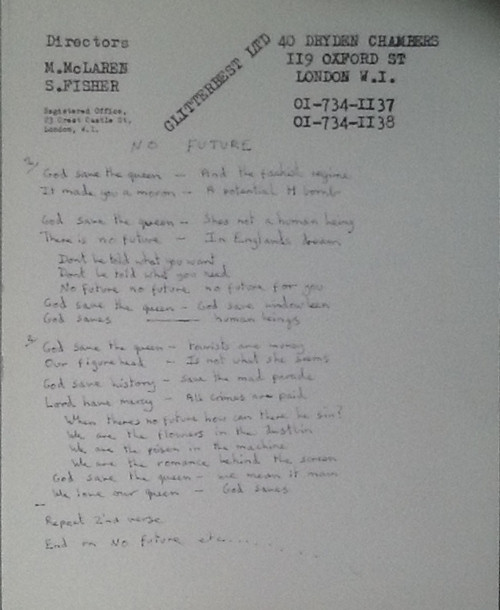 Directors
M.McLAREN
S.FISHER
Registered Office,
23 Great Castle St,
London, W.1.
GLITTERBEST LTD
40 DRYDEN CHAMBERS
119 OXFORD ST
LONDON W.I.
01-734-1137
01-734-1138
NO FUTURE
God save the queen — And the fascist regime
It made you a moron — A potential H bomb
God save the queen — Shes not a human being
There is no future — In Englands dream
Dont be told what you want
Dont be told what you need
No future no future no future for you
God save the queen — God save
God saves —— human beings
God save the queen — tourists are money
Our figurehead — Is not what she seems
God save history — Save the mad parade
Lord have mercy — All crimes are paid
When theres no future how can there be sin?
We are the flowers in the dustbin
We are the poison in the machine
We are the romance behind the screen
God save the queen — we mean it man
We love our queen — God saves
Repeat 2nd verse
End on No future etc........